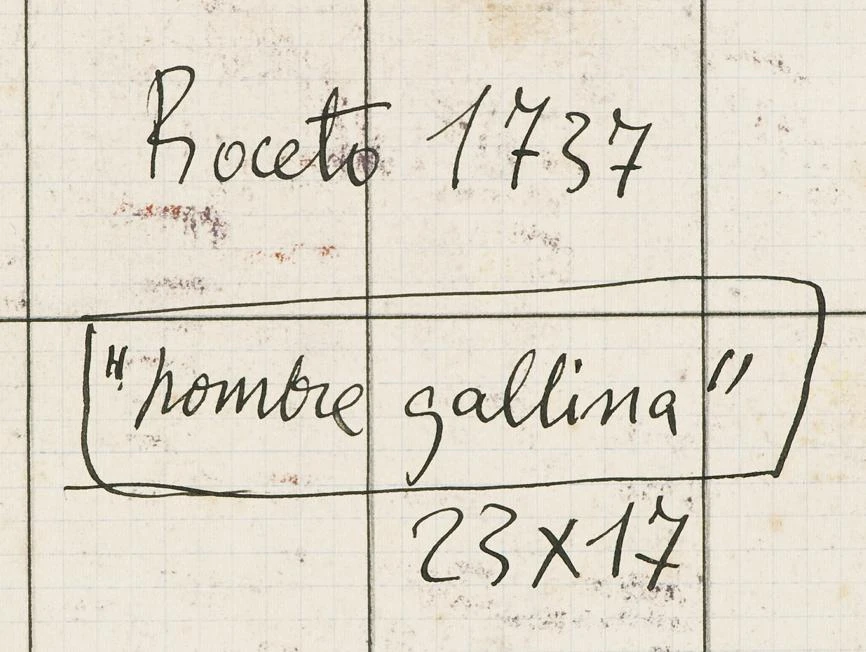 Boceto 1737
"hombre gallina"
23x17